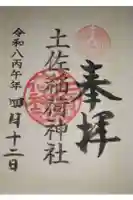 奉拝
土佐稲荷神社
令和八丙午年四月十二日